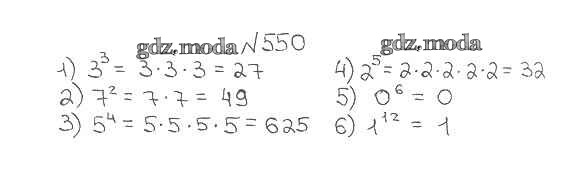 gdz.moda №550
gdz.moda
1) 3³ = 3·3·3 = 27
2) 7² = 7·7 = 49
3) 5⁴ = 5·5·5·5 = 625
4) 2⁵ = 2·2·2·2·2 = 32
5) 0⁶ = 0
6) 1¹² = 1